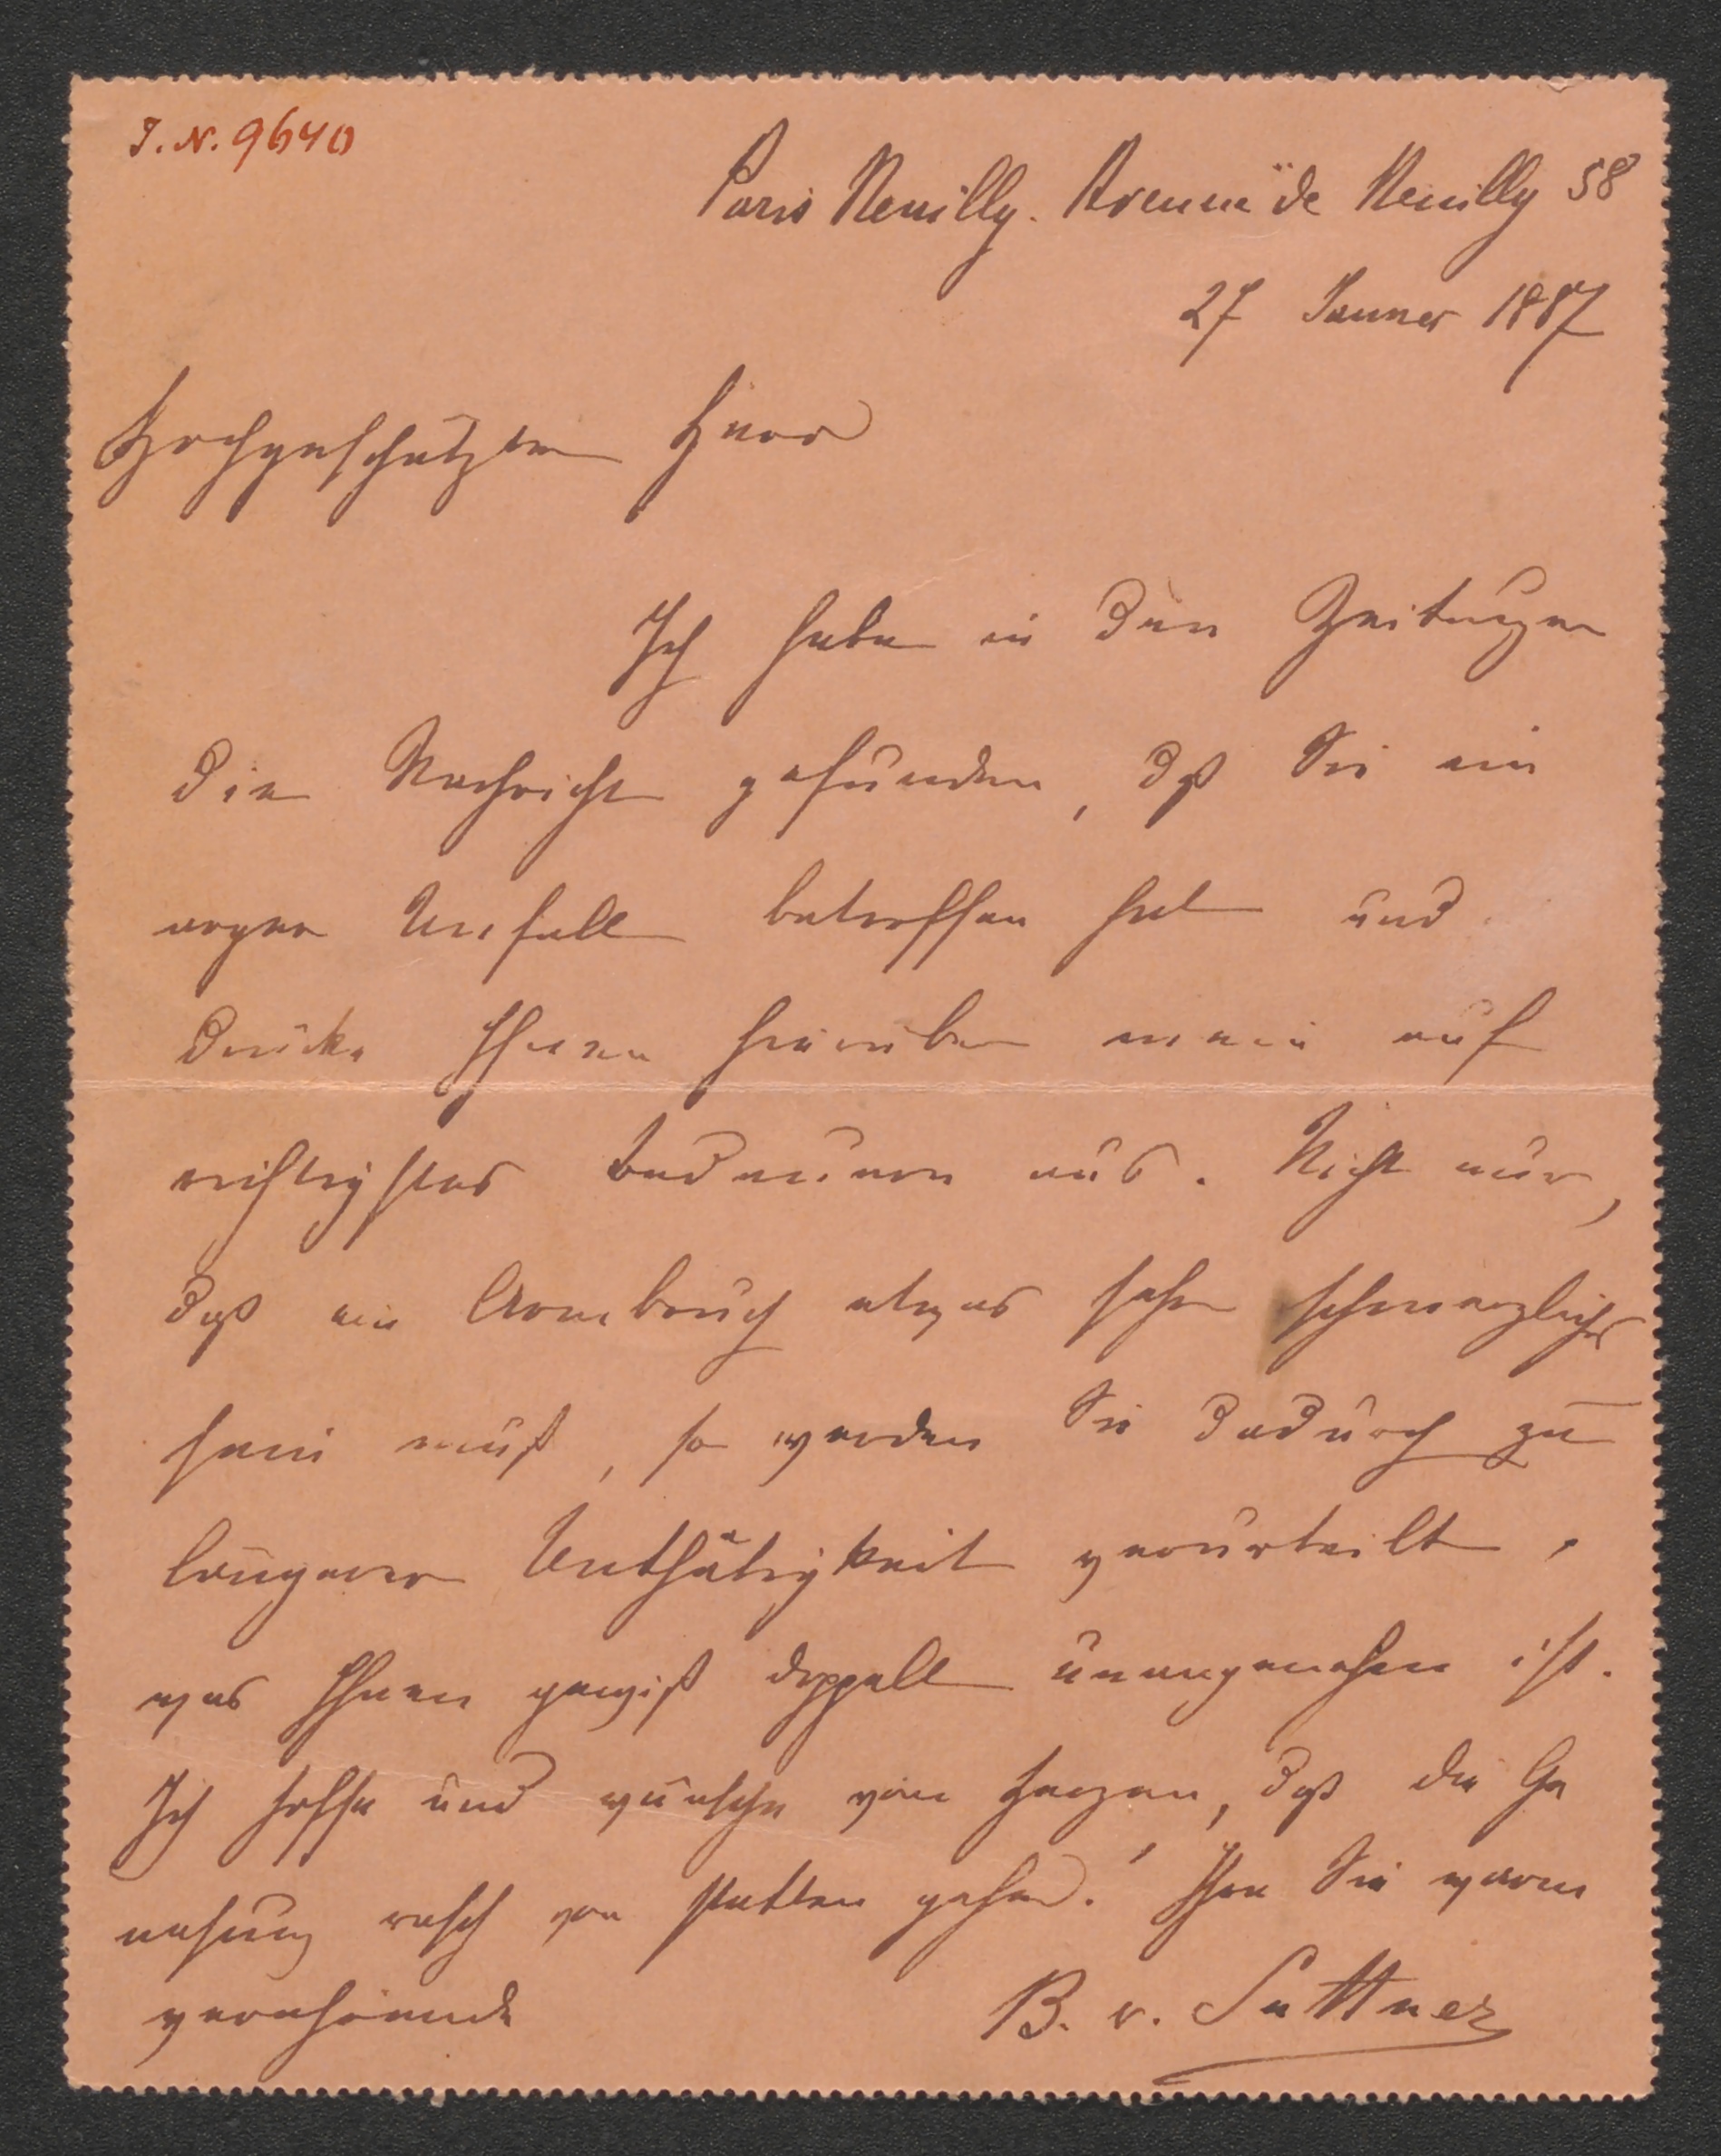 I. N. 9640
Paris Neuilly. Avenue de Neuilly 58
27 Janner 1887
Hochgeschätzter Herr
Ich habe in den Zeitungen
die Nachricht gefunden, daß Sie ein
arger Unfall betroffen hat und
drücke Ihnen hierüber mein auf
richtigstes Bedauern aus. Nicht nur,
daß ein Armbruch etwas sehr schmerzliches
sein muß, so werden Sie dadurch zu
längerer Unthätigkeit verurteilt,
was Ihnen gewiß doppelt unangenehm ist.
Ich hoffe und wünsche von Herzen, daß die Ge
nesung rasch von statten gehe. Ihre Sie warm
verehrende
B. v. Suttner